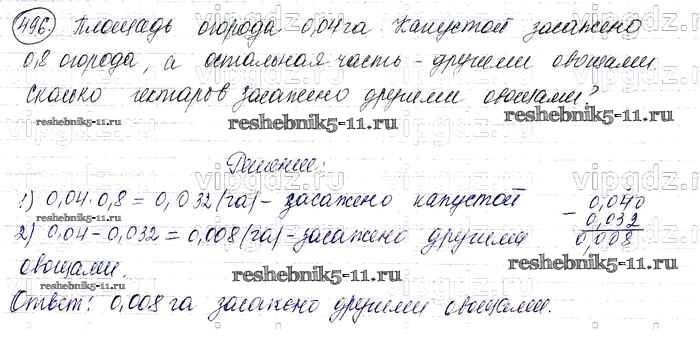 496. Площадь огорода 0,04 га. Капустой засажено
0,8 огорода, а остальная часть - другими овощами.
Сколько гектаров засажено другими овощами?
reshebnik5-11.ru reshebnik5-11.ru
Решение:
1) 0,04·0,8 = 0,032 (га) - засажено капустой
reshebnik5-11.ru
2) 0,04 - 0,032 = 0,008 (га) - засажено другими
овощами.
- 0,040
0,032
0,008
reshebnik5-11.ru reshebnik5-11.ru
Ответ: 0,008 га засажено другими овощами.
vipgdz.ru vipgdz.ru